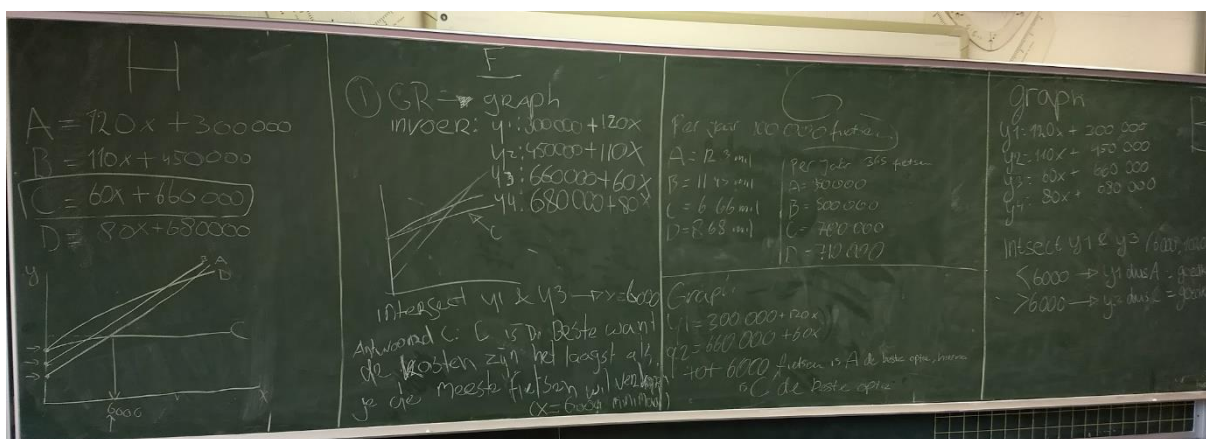 H
A = 120x + 300 000
B = 110x + 450000
C = 60x + 660 000
D = 80x + 680000
y
A
D
C
x
6000
F
① GR → graph
invoer: y1: 300000 + 120x
y2: 450000 + 110x
y3: 660000 + 60x
y4: 680000 + 80x
C
intersect y1 & y3 → x=6000
Antwoord C: C is De Beste want
de kosten zijn het laagst als
je de meeste fietsen wil
(x=6000 minimaal)
G
Per jaar 100.000 fietsen
A = 12.3 mil
B = 11.45 mil
C = 6.66 mil
D = 8.68 mil
per jaar 365 fietsen
B = 500.000
D = 710.000
Graph:
y1 = 300.000 + 120x
y2 = 660.000 + 60x
tot 6000 fietsen is A de beste optie,
is C de beste optie
graph
y1 = 120x + 300 000
y2 = 110x + 450 000
y3 = 60x + 660 000
y4 = 80x + 680 000
Intsect y1 & y3
<6000 → y1 dus A =
>6000 → y3 dus C =